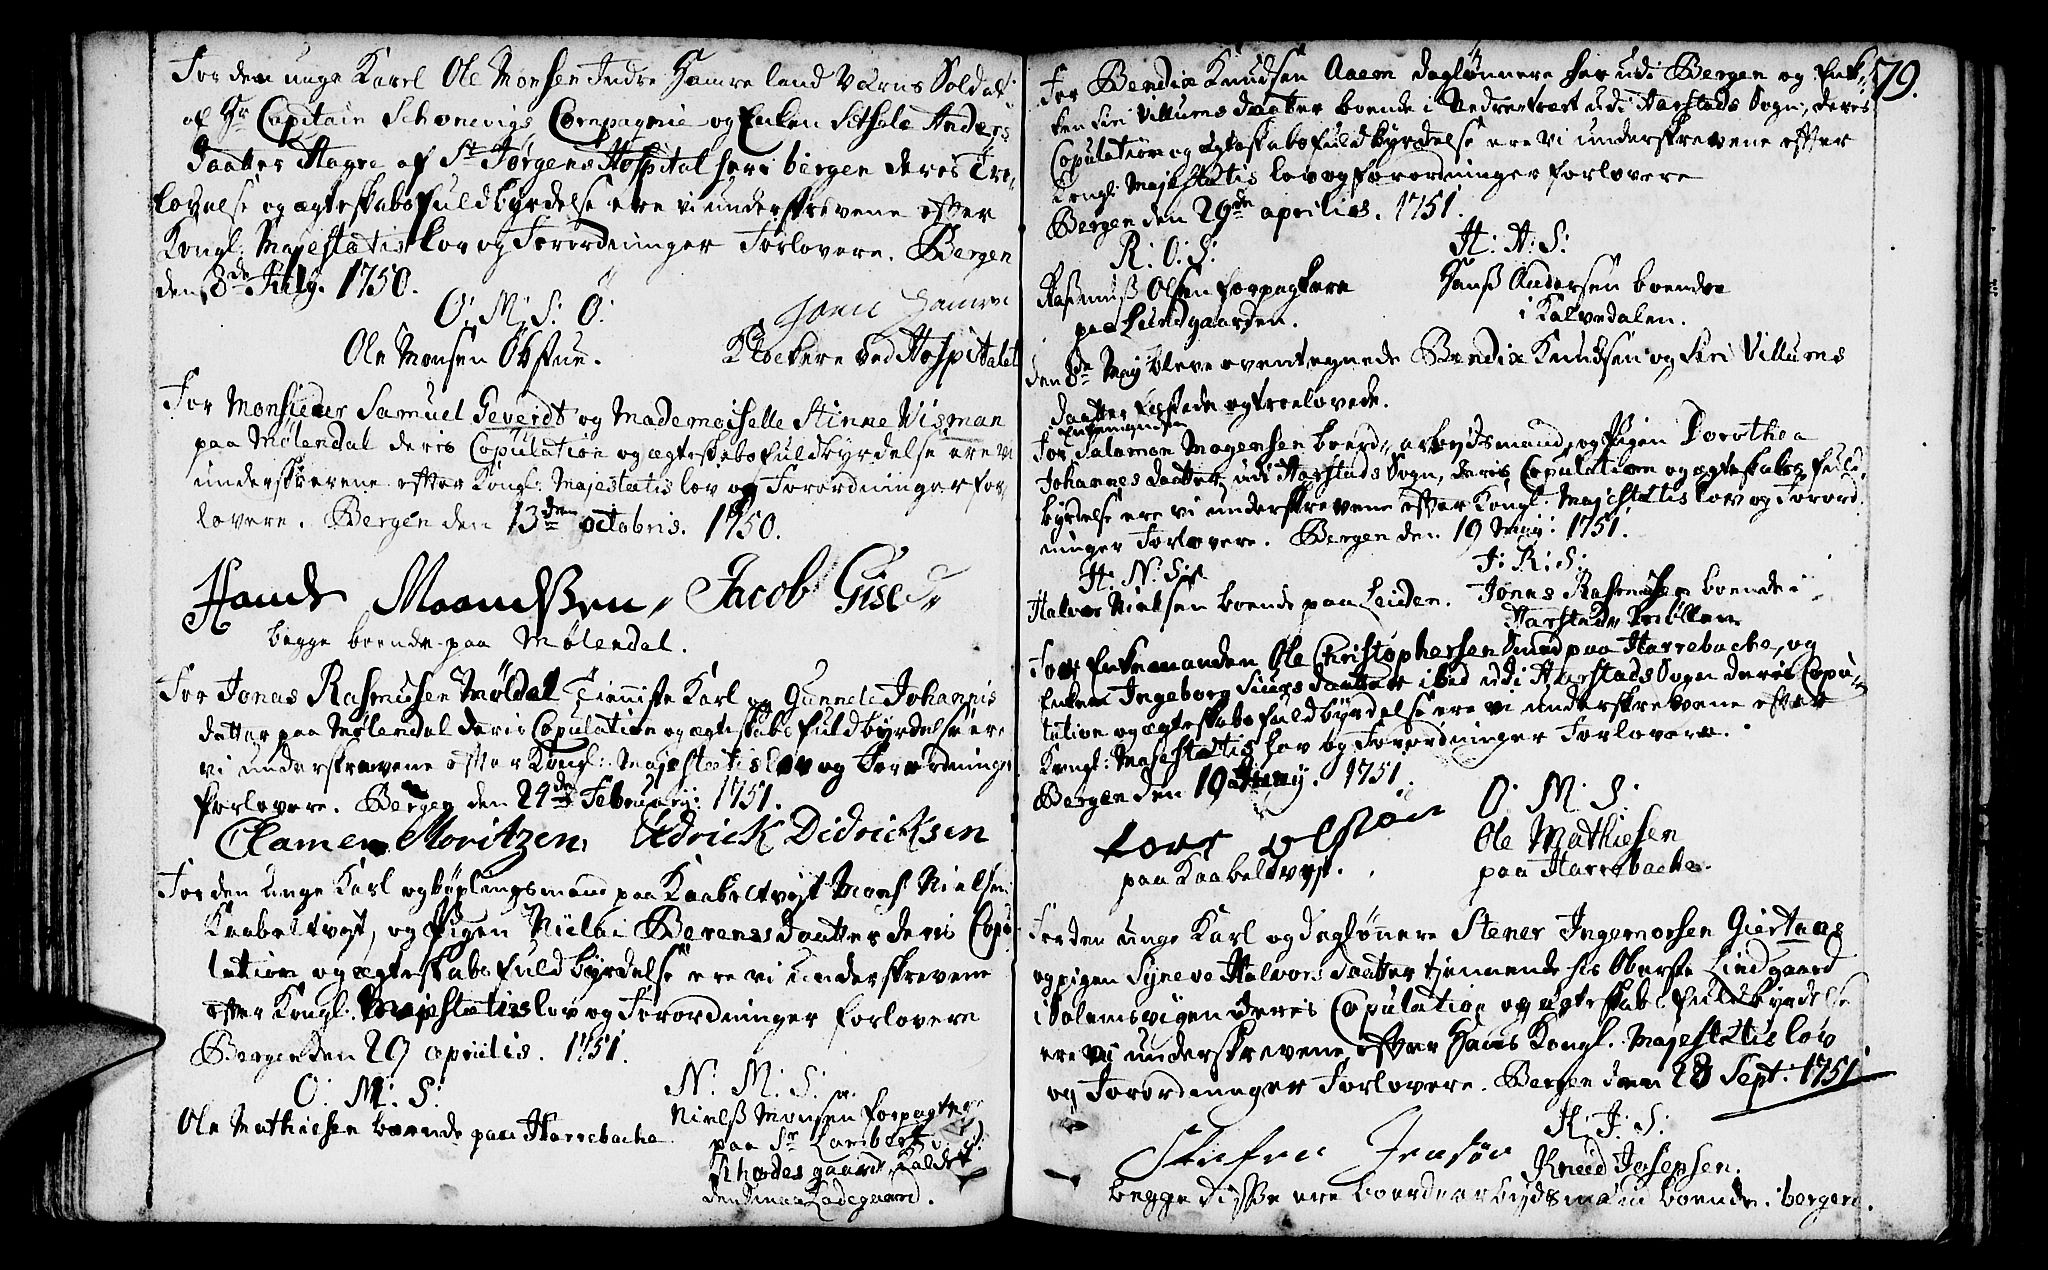 For den unge Karl Ole Monsen Indre Hamre land Værns Soldat
af Hr Capitain Schonevigs Compagnie og Enken Sitsele Anders
daatter Hagre af St Jørgens Hospital her i bergen deres Tro,,
lovelse og ægteskabs fuldbyrdelse ere vi underskrevene efter
Kongl: Majestætis lov og Forordninger Forlovere. Bergen
den 8de July. 1750.
O: M: S: Ø:
Ole Monsen Øbstue.
Joen Hamre
Klockere ved Hospitalet
For Monsieur Samuel Geverdt og Mademoiselle Stinne Visman
paa Mølendal deris Copulation og ægteskabs fuldbyrdelse ere vi
underskrevene efter Kongl: Majestætis lov og Forordninger for
lovere. Bergen den 13den octobris. 1750.
Hands Maandssen, Jacob Gise
begge boende paa Mølendal.
For Jonas Rasmusen Møldal Tienniste Karl og Gunnele Johannis
datter paa Mølendal deris Copulation og ægteskabs fuldbyrdelse ere
vi underskrevene efter Kongl: Majestætis lov og Forordninger
forlovere. Bergen den 24de February: 1751.
Clamen Moritzen, Didrick Didricksen
For den unge Karl og bøxlingsmand paa Kaabeltvæjt Mons Nielsen
Kaabeltvæjt, og Pigen Nielsi Berendsdaatter deris Copu
lation og ægteskabs fuldbyrdelse ere vi underskrevene
efter Kongl: Majestætis lov og Forordninger forlovere
Bergen den 29 aprilis. 1751.
O: M: S:
Ole Mathiesen boende paa Harrebacke
N: M: S:
Nielss Monsen forpagter
paa Sr Lambert
Rhodes gaard kaldet
den Ladegaard.
79.
For Bendix Knudsen Aaem daglønnere her udi Bergen og Enk,,
ken Siri Villums daatter boende i udi Harstads Sogn, deres
Copulation og ægteskabs fuldbyrdelse ere vi underskrevene efter
Kongl: Majestætis lov og forordninger forlovere
Bergen den 29de aprilis. 1751.
R: O: S:
Rasmuss Olsen forpagtere
paa Lundgaarden.
H: A: S:
Hanss Andersen boende
i Kalvedalen.
den 8de Maij bleve oventegnede Bendix Knudsen og Siri Villums
daatter festede og troelovede.
Enkemanden
For Salamon Magensen boerd,, arbejdsmand, og Pigen Dorothea
Johannes daatter udi Harstads Sogn, deris Copulation og ægteskabs fuld
byrdelse ere vi underskrevene efter Kongl: Majestætis lov og Forord,,
ninger Forlovere. Bergen den 19 Maij: 1751.
H. N: S:
Halvor Nielsen boende paa Leiden.
J: R: S:
Jonas Rasmusen boende i
Harstads Møllen
For Enkemanden Ole Christophersen Smed paa Harrebacke, og
Enken Ingeborg Siurs daatter ibid udi Harstads Sogn deris Copu,,
lation og ægteskabs fuldbyrdelse ere vi underskrevene efter
Kongl: Majestætis lov og Forordninger Forlovere.
Bergen den 19 Juny. 1751.
paa Kaabeltvejt.
O: M: S:
Ole Mathiesen
paa Harrebacke.
For den unge Karl og daglønnere Stener Ingemorsen Giertnæs
og pigen Syneve Halvors daatter tjennende hos Oberste Lindgaard
i Solemsvigen deres Copulation og ægteskabs fuldbyrdelse
ere vi underskrevene efter Hans Kongl. Majestætis lov
og Forordninger Forlovere. Bergen den 28 Sept: 1751.
Stefen Jensøn
K: J: S:
Knud Josepsen.
begge disse ere boerdearbejdsmænd boende i bergen.